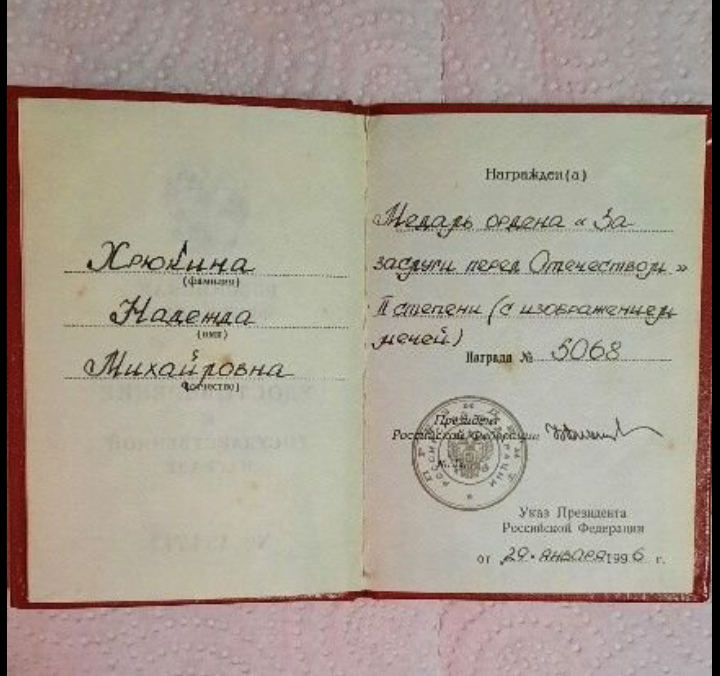 Хрюкина
(фамилия)
Надежда
(имя)
Михайловна
(отчество)
Награжден(а)
Медаль ордена «За
заслуги перед Отечеством»
II степени (с изображением
мечей)
Награда № 5068
Президент
Российской Федерации
Указ Президента
Российской Федерации
от 29 января 1996 г.